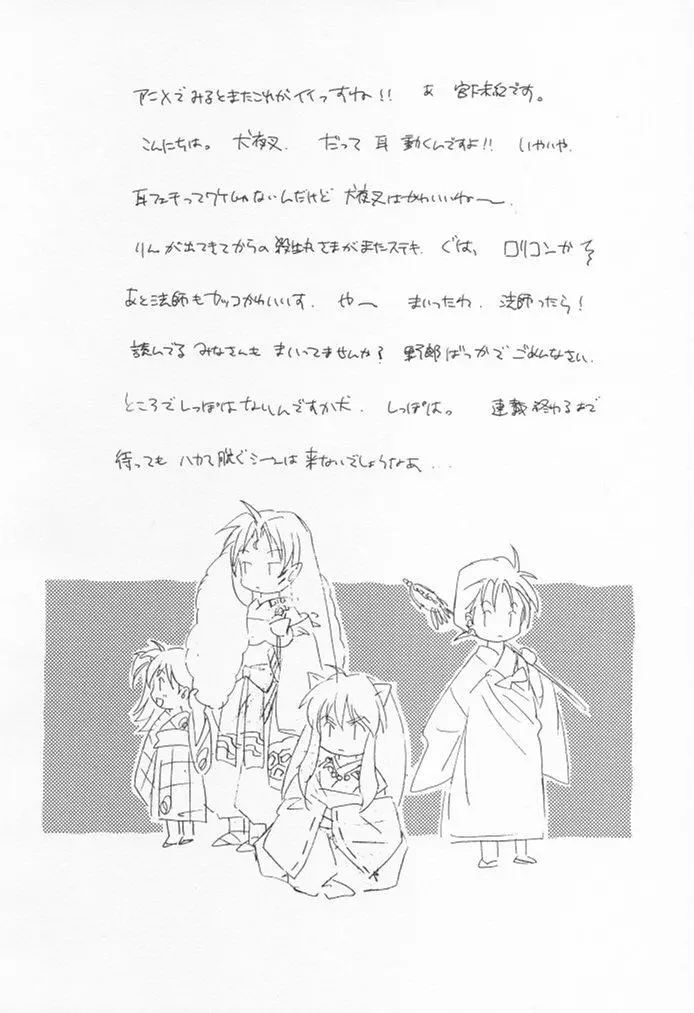 アニメでみるとまたこれがイイっすね!! あ 宮下未紀です。
こんにちは。 犬夜叉. だって 耳 動くんですよ!! いやいや.
耳フェチってワケじゃないんだけど 犬夜叉はかわいいねー.
りんが出てきてからの殺生丸さまがまたステキ. ぐは, ロリコンかも
あと法師もカッコかわいいす. やー まいったわ. 法師ったら!
読んでる みなさんも まいってませんか? 野郎ばっかでごめんなさい.
ところでしっぽはないんですか犬. しっぽは。 連載終わるまで
待っても ハカマ脱ぐシーンは来ないでしょうなあ...